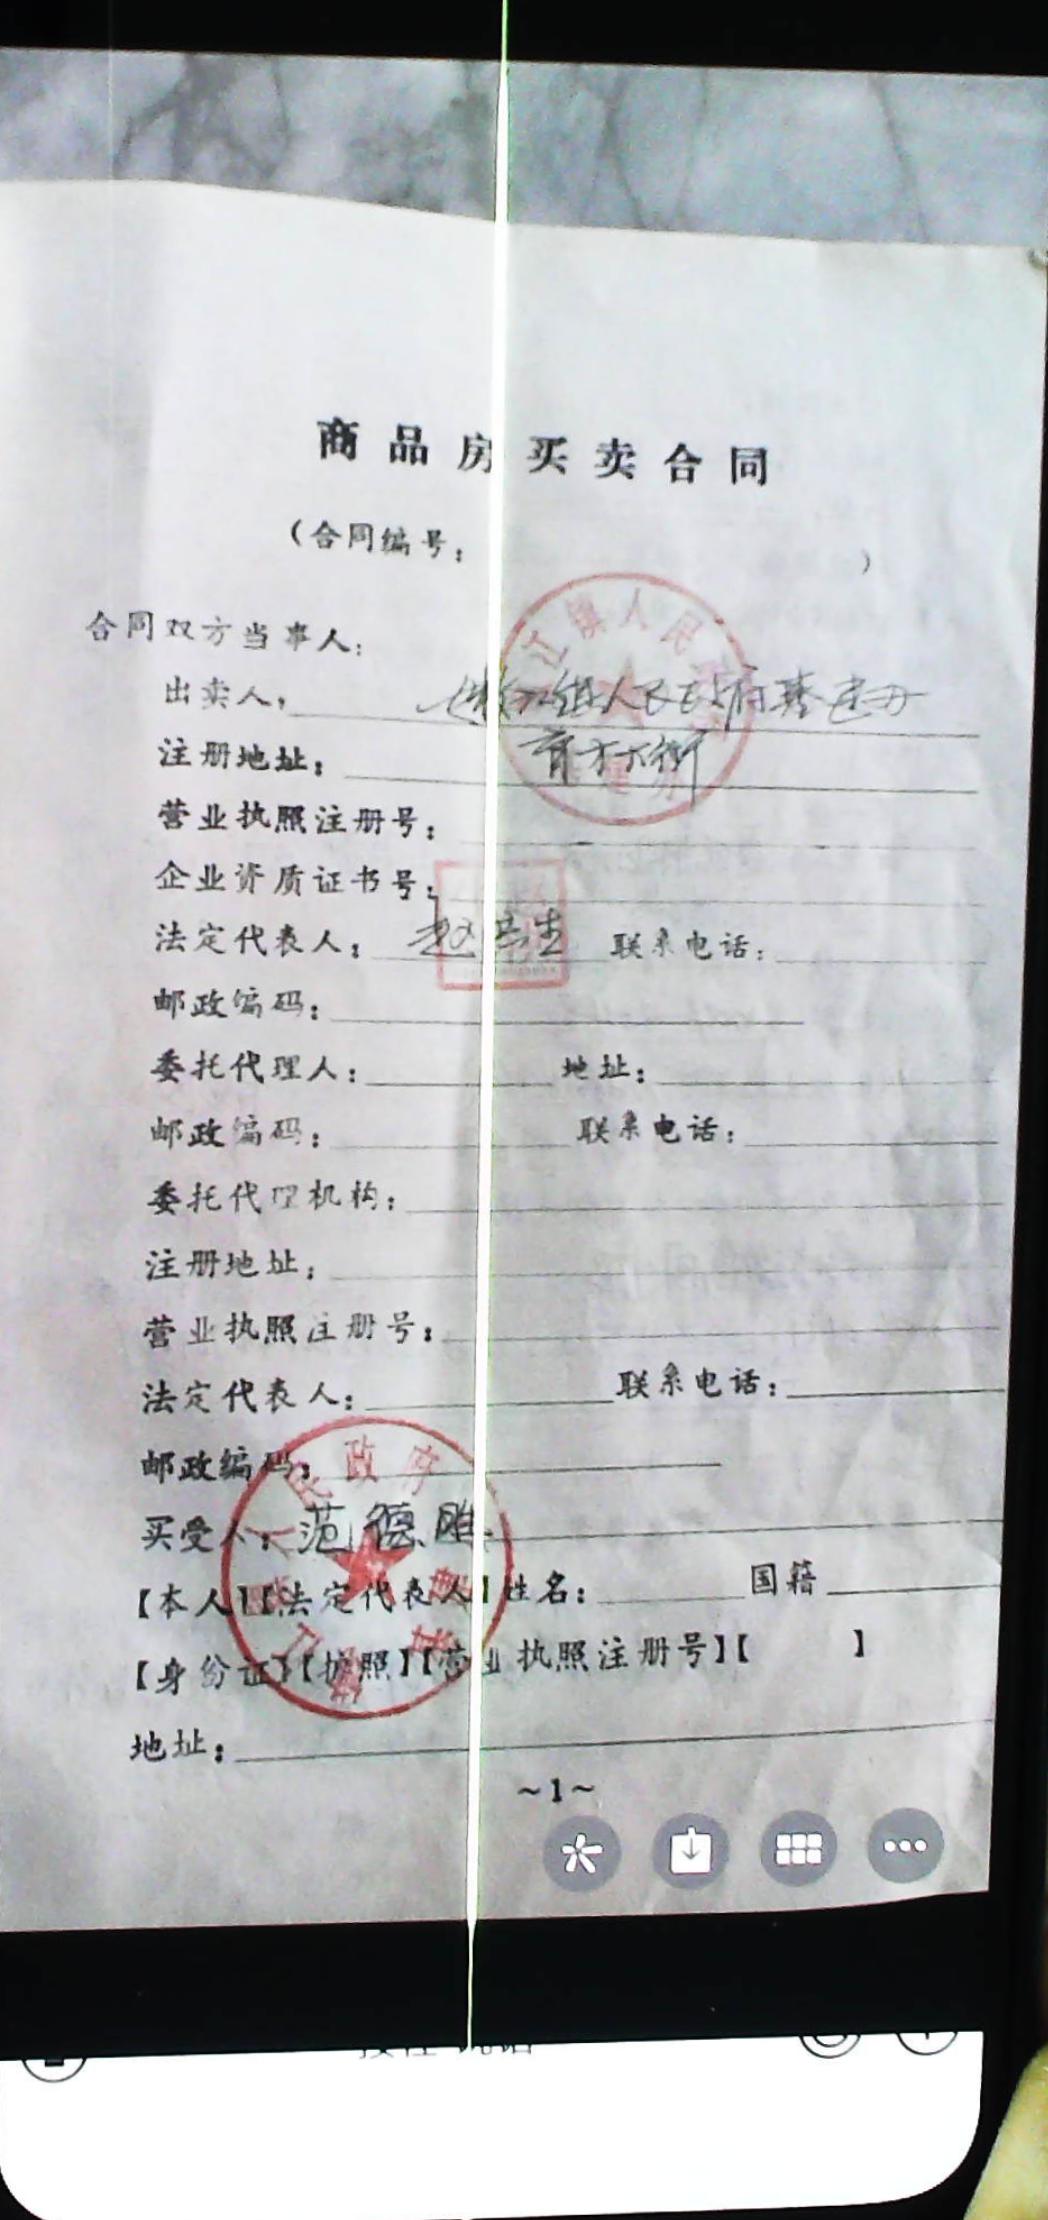 商品房买卖合同
（合同编号： ）
合同双方当事人：
出卖人： 江镇人民政府基建办
注册地址： 育才大街
营业执照注册号：
企业资质证书号：
法定代表人： 赵 生 联系电话：
邮政编码：
委托代理人： 地址：
邮政编码： 联系电话：
委托代理机构：
注册地址：
营业执照注册号：
法定代表人： 联系电话：
邮政编码：
买受人： 范德胜
【本人】【法定代表人】姓名： 国籍
【身份证】【护照】【营业执照注册号】【 】
地址：
~1~